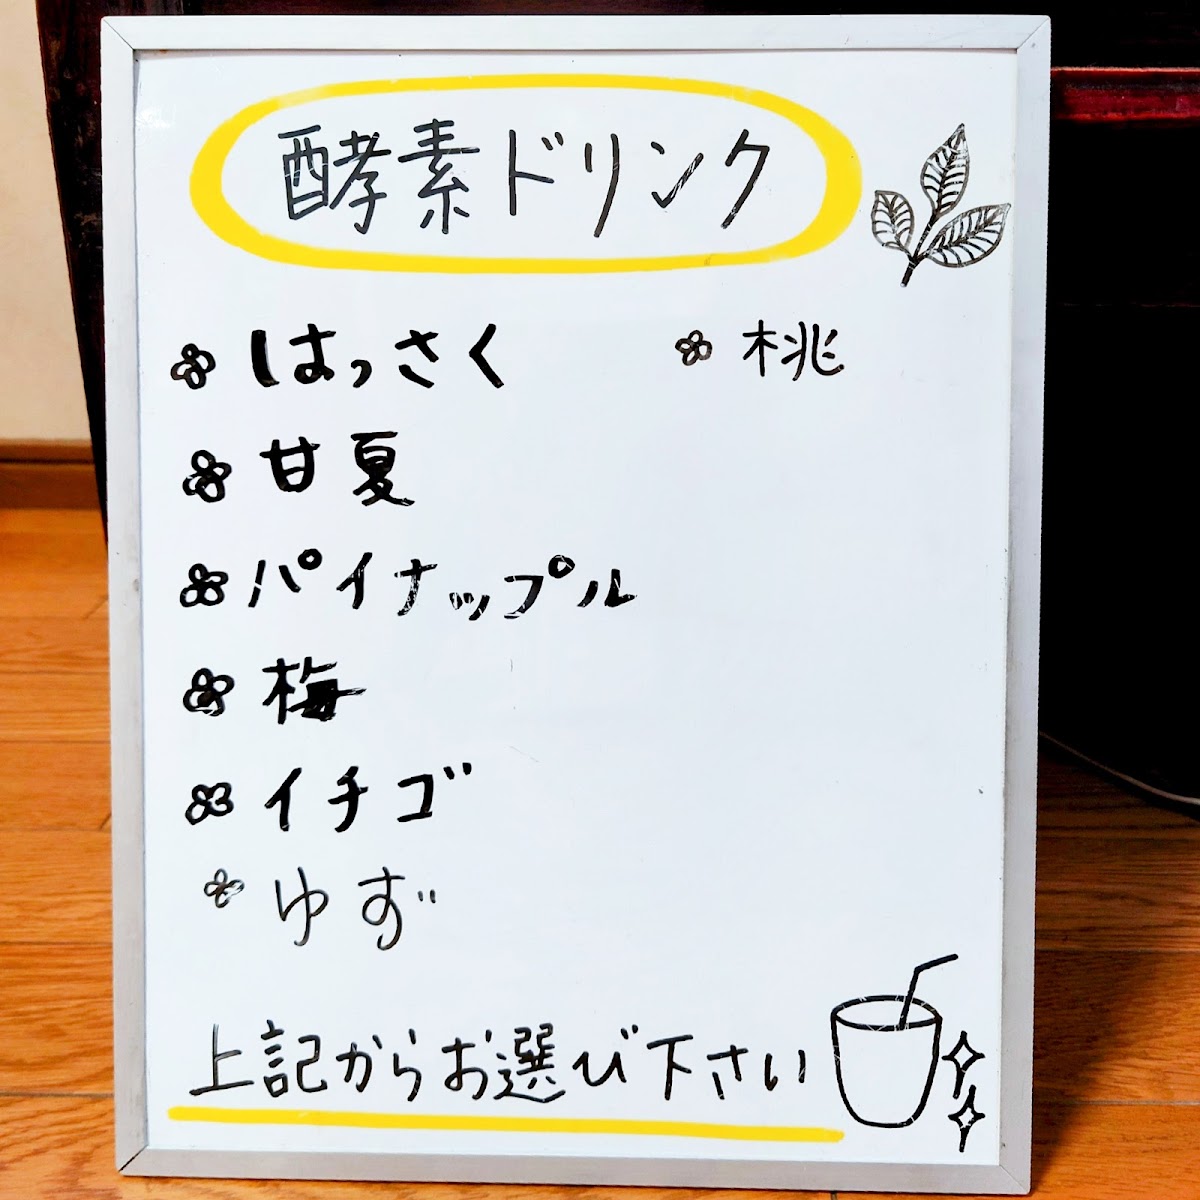 酵素ドリンク
はっさく
甘夏
パイナップル
梅
イチゴ
ゆず
桃
上記からお選び下さい